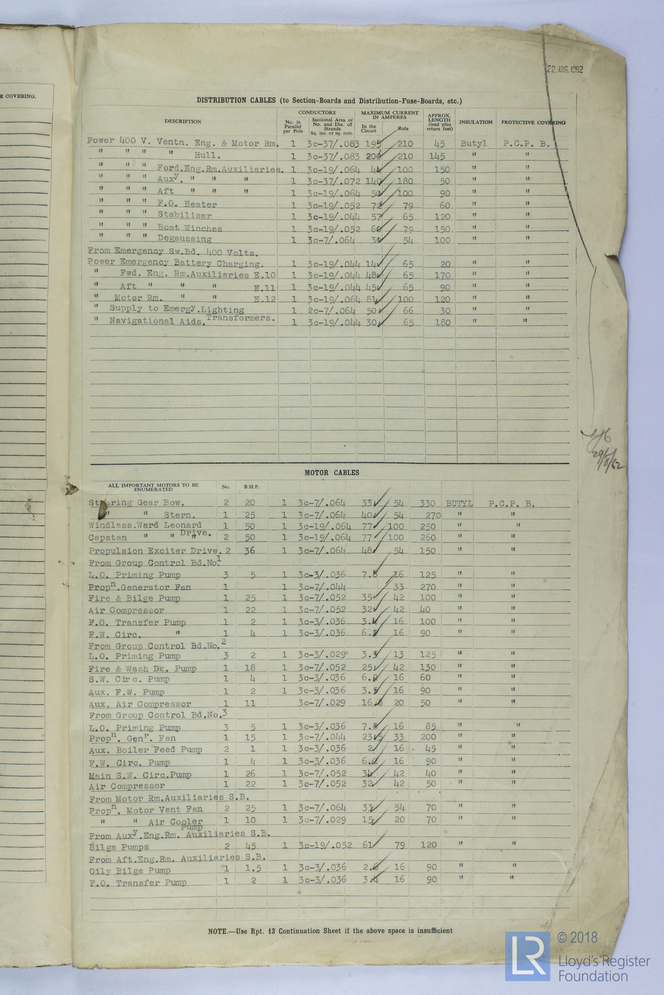 E COVERING.
22 AUG 1962
DISTRIBUTION CABLES (to Section-Boards and Distribution-Fuse-Boards, etc.)
DESCRIPTION CONDUCTORS No. in Parallel per Pole Sectional Area or No. and Dia. of Strands Sq. ins. or sq. mm. MAXIMUM CURRENT IN AMPERES In the Circuit Rule APPROX. LENGTH (lead plus return feet) INSULATION PROTECTIVE COVERING
Power 400 V. Ventn. Eng. & Motor Rm. 1 3c-37/.083 195 210 45 Butyl P.C.P. B.
" " " " Hull. 1 3c-37/.083 206 210 145 " "
" " " Ford.Eng.Rm.Auxiliaries. 1 3c-19/.064 100 150 " "
" " " Auxy. " " " 1 3c-37/.072 140 180 50 " "
" " " Aft " " " 1 3c-19/.064 100 90 " "
" " " F.O. Heater 1 3c-19/.052 79 60 " "
" " " Stabiliser 1 3c-19/.044 57 65 120 " "
" " " Boat Winches 1 3c-19/.052 79 150 " "
" " " Degaussing 1 3c-7/.064 54 100 " "
From Emergency Sw.Bd. 400 Volts.
Power Emergency Battery Charging. 1 3c-19/.044 14 65 20 " "
" Fwd. Eng. Rm.Auxiliaries E.10 1 3c-19/.044 48 65 170 " "
" Aft " " " E.11 1 3c-19/.044 45 65 90 " "
" Motor Rm. " " E.12 1 3c-19/.064 81 100 120 " "
" Supply to Emergy.Lighting 1 2c-7/.064 50 66 30 " "
" Navigational Aids.Transformers. 1 3c-19/.044 30 65 180 " "
29/8/62
MOTOR CABLES
ALL IMPORTANT MOTORS TO BE ENUMERATED No. B.H.P.
Steering Gear Bow. 2 20 1 3c-7/.064 33 54 330 BUTYL P.C.P. B.
" " Stern. 1 25 1 3c-7/.064 40 54 270 " "
Windlass.Ward Leonard 1 50 1 3c-19/.064 77 100 250 " "
Capstan " " Drive. 2 50 1 3c-19/.064 77 100 260 " "
Propulsion Exciter Drive. 2 36 1 3c-7/.064 48 54 150 " "
From Group Control Bd.No.1
L.O. Priming Pump 3 5 1 3c-3/.036 7.8 16 125 " "
Propn.Generator Fan 1 1 3c-7/.044 33 270 " "
Fire & Bilge Pump 1 25 1 3c-7/.052 35 42 100 " "
Air Compressor 1 22 1 3c-7/.052 32 42 40 " "
F.O. Transfer Pump 1 2 1 3c-3/.036 3.4 16 100 " "
F.W. Circ. " 1 4 1 3c-3/.036 16 90 " "
From Group Control Bd.No.2
L.O. Priming Pump 3 2 1 3c-3/.029 13 125 " "
Fire & Wash Dk. Pump 1 18 1 3c-7/.052 25 42 130 " "
S.W. Circ. Pump 1 4 1 3c-3/.036 16 60 " "
Aux. F.W. Pump 1 2 1 3c-3/.036 16 90 " "
Aux. Air Compressor 1 11 3c-7/.029 20 50 " "
From Group Control Bd.No.3
L.O. Priming Pump 3 5 1 3c-3/.036 7.8 16 85 " "
Propn. Genr. Fan 1 15 1 3c-7/.044 33 200 " "
Aux. Boiler Feed Pump 2 1 1 3c-3/.036 2 16 45 " "
F.W. Circ. Pump 1 4 1 3c-3/.036 16 90 " "
Main S.W. Circ.Pump 1 26 1 3c-7/.052 42 40 " "
Air Compressor 1 22 1 3c-7/.052 32 42 50 " "
From Motor Rm.Auxiliaries S.B.
Propn. Motor Vent Fan 2 25 1 3c-7/.064 33 54 70 " "
" " Air Cooler Pump 1 10 1 3c-7/.029 15 20 70 " "
From Auxy.Eng.Rm. Auxiliaries S.B.
Bilge Pumps 2 45 1 3c-19/.052 61 79 120 " "
From Aft.Eng.Rm. Auxiliaries S.B.
Oily Bilge Pump 1 1.5 1 3c-3/.036 16 90 " "
F.O. Transfer Pump 1 2 1 3c-3/.036 3.4 16 90 " "
NOTE.—Use Rpt. 13 Continuation Sheet if the above space is insufficient
LR © 2018
Lloyd's Register
Foundation